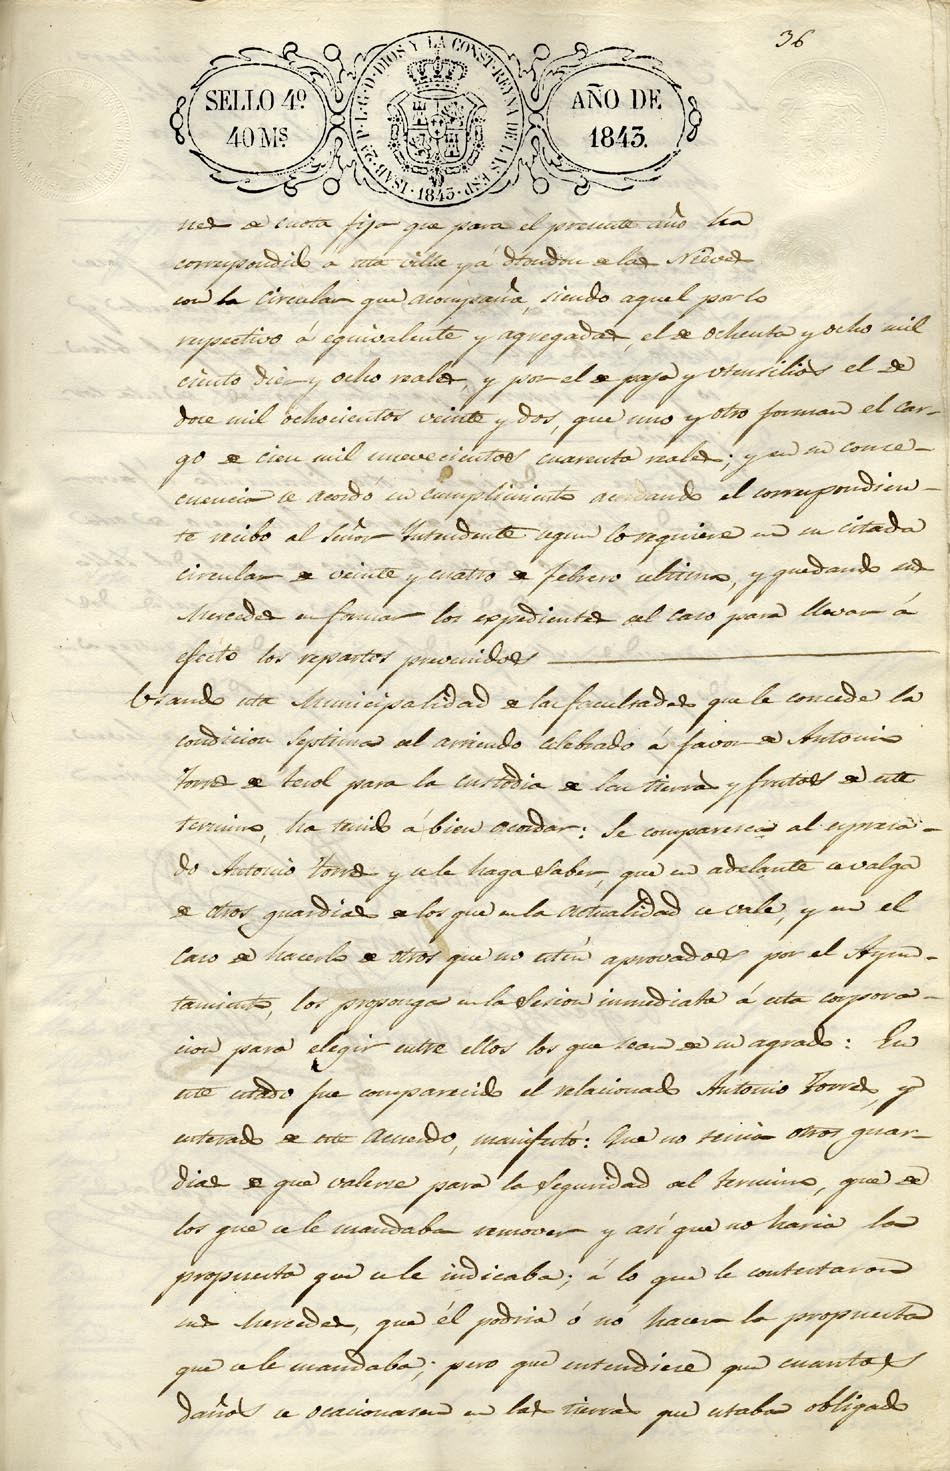 36
SELLO 4º
40 Mˢ.
ISAB. 2ª P. L. G. D. DIOS Y LA CONST. REYNA DE LAS ESP.
1843
AÑO DE
1843.
nes de cuota fija que para el presente año ha
correspondido á esta villa y á Hondon de las Nieves
con la circular que acompaña, siendo aquel por lo
respectivo á equivalente y agregadas, el de ochenta y ocho mil
ciento diez y ocho reales, y por el de paja y utensilios el de
doce mil ochocientos veinte y dos, que uno y otro forman el car-
go de cien mil nuevecientos cuarenta reales; y en su conse-
cuencia se acordó su cumplimiento acordando el correspondien-
te recibo al Señor Yntendente segun lo requiere en su citada
circular de veinte y cuatro de Febrero ultimo, y quedando sus
Mercedes en formar los expedientes del caso para llevar á
efecto los repartos prevenidos
Usando esta Municipalidad de las facultades que le concede la
condicion septima del arriendo celebrado á favor de Antonio
Torres de Terol para la custodia de las tierras y frutos de este
termino, ha tenido á bien acordar: Se comparesca al expresa-
do Antonio Torres y se le haga saber, que en adelante se valga
de otros guardias de los que en la actualidad se vale, y en el
caso de hacerlo de otros que no estén aprovados por el Ayun-
tamiento, los proponga en la Sesion inmediata á esta corpora-
cion para elegir entre ellos los que sean de su agrado: En
este estado fue comparecido el relacionado Antonio Torres, y
enterado de este Acuerdo, manifestó: Que no tenia otros guar-
dias de que valerse para la seguridad del termino, que de
los que se le mandaba remover y asi que no haria la
propuesta que se le indicaba; á lo que le contestaron
sus Mercedes, que él podria ó nó hacer la propuesta
que se le mandaba; pero que entendiese que cuantos
daños se ocacionasen en las tierras que estaba obligado